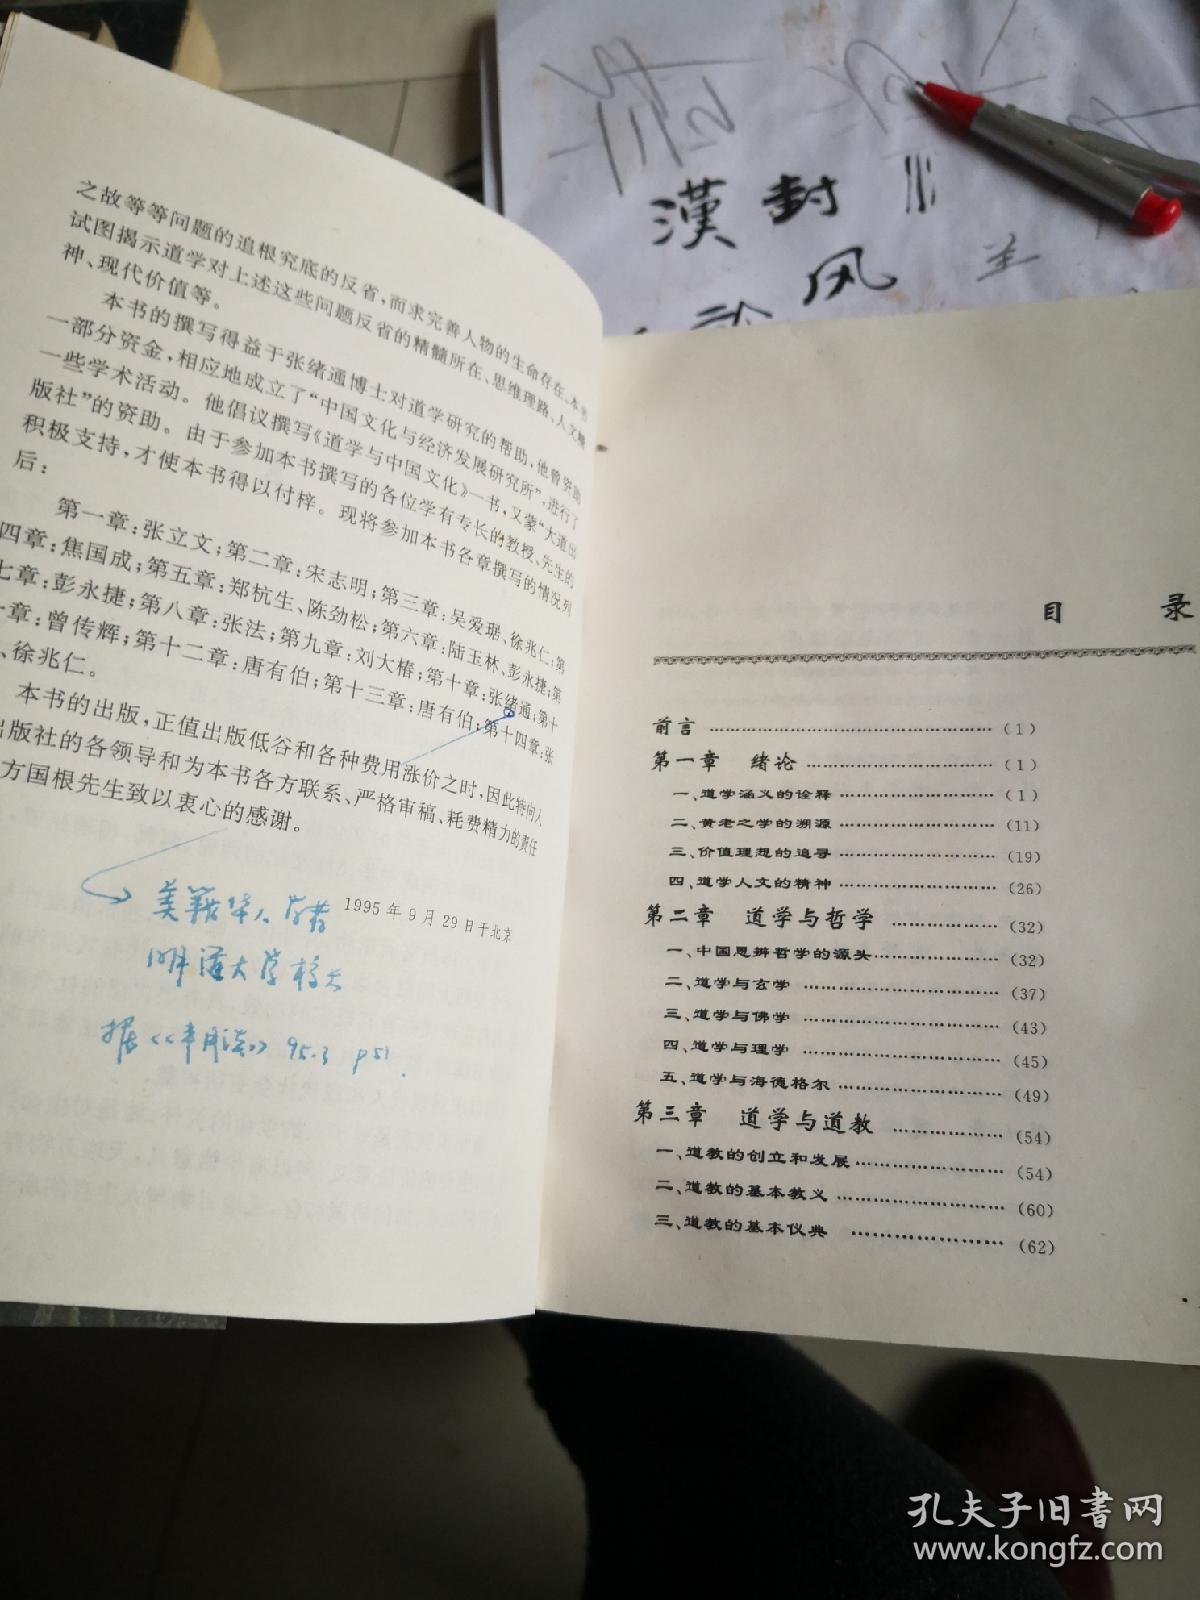 之故等等问题的追根究底的反省,而求完善人物的生命存在。本书
试图揭示道学对上述这些问题反省的精髓所在、思维理路、人文精
神、现代价值等。
本书的撰写得益于张绪通博士对道学研究的帮助,他曾资助
一部分资金,相应地成立了“中国文化与经济发展研究所”,进行了
一些学术活动。他倡议撰写《道学与中国文化》一书,又蒙“大道出
版社”的资助。由于参加本书撰写的各位学有专长的教授、先生的
积极支持,才使本书得以付梓。现将参加本书各章撰写的情况列
后:
第一章:张立文;第二章:宋志明;第三章:吴爱琚、徐兆仁;第
四章:焦国成;第五章:郑杭生、陈劲松;第六章:陆玉林、彭永捷;第
七章:彭永捷;第八章:张法;第九章:刘大椿;第十章:张绪通;第十
一章:曾传辉;第十二章:唐有伯;第十三章:唐有伯;第十四章:张
、徐兆仁。
本书的出版,正值出版低谷和各种费用涨价之时,因此特向人
出版社的各领导和为本书各方联系、严格审稿、耗费精力的责任
方国根先生致以衷心的感谢。
1995年9月29日于北京
美籍华人学者
明道大学校长
据《半月谈》95.3 P51.
漢 封
风
目 录
前言 ……………………………………(1)
第一章 绪论 ……………………………(1)
一、道学涵义的诠释 ……………………(1)
二、黄老之学的溯源 ……………………(11)
三、价值理想的追寻 ……………………(19)
四、道学人文的精神 ……………………(26)
第二章 道学与哲学 ……………………(32)
一、中国思辨哲学的源头………………(32)
二、道学与玄学 …………………………(37)
三、道学与佛学 …………………………(43)
四、道学与理学 …………………………(45)
五、道学与海德格尔 ……………………(49)
第三章 道学与道教 ……………………(54)
一、道教的创立和发展…………………(54)
二、道教的基本教义 ……………………(60)
三、道教的基本仪典 ……………………(62)
孔夫子旧书网
www.kongfz.com